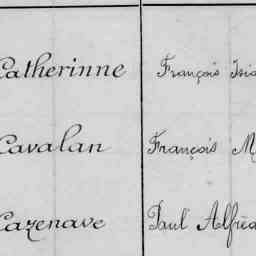 Catherinne François Isid
Cavalan François M
Cazenave Paul Alfred